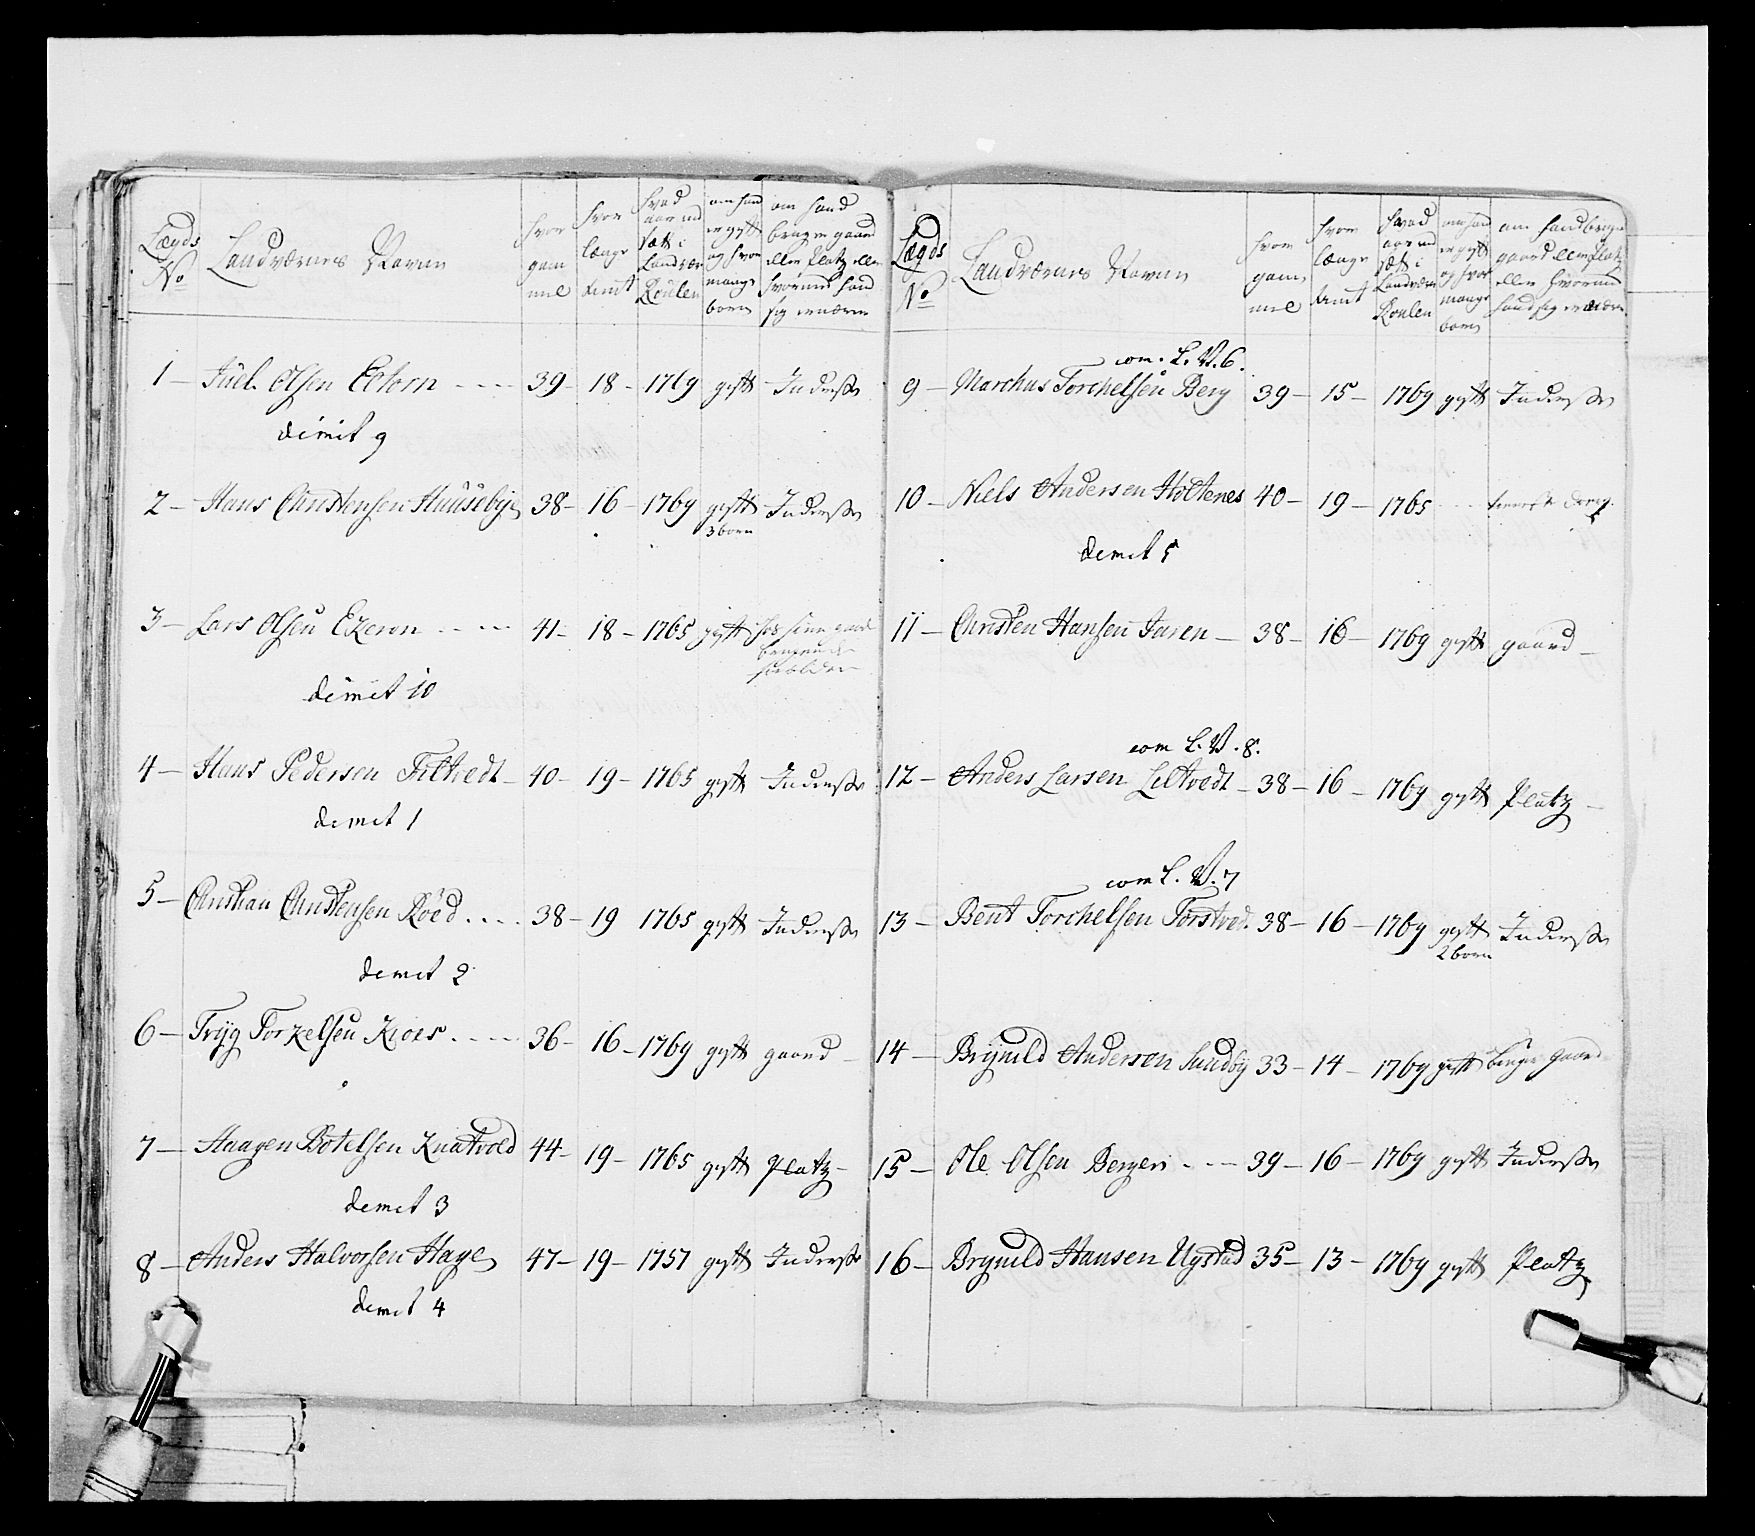 Lægds No
Landværnes Navnn
hvor gammel
hvor længe tient
hvad aar ind sat i Landvær Roulen
om hand er gyft og hvor mange børn
om hand bruger gaard eller Platz eller hvormed hand sig ernærer
1 — Juel Olsen Eetorn - - - 39 - 18 - 1769 gyft Inderste
dimit 9
2 — Hans Christensen Huusebÿe 38 - 16 - 1769 gyft Inderste
3 born
3 — Lars Olsen Ekeron - - - 41 - 18 - 1765 gyft hos sinn
dimit 10
4 — Hans Pedersen Filtvedt - 40 - 19 - 1765 gyft Inderste
demit 1
5 — Christian Christensen Röed . . . . 38 - 19 1765 gyft Inderste
demit 2
6 — Trÿg Torkelsen Kioes . - - - 36 - 16 - 1769 gyft gaard
7 — Haagen Botelsen Knatvold 44 - 19 - 1765 gyft Platz -
demit 3
8 — Anders Halvorsen Hage 47 - 19 - 1757 gyft Inderste
demit 4
Lægds No
Landværnes Navnn
hvor gammel
hvor længe tient
hvad aar ind sat i Landværn Roulen
om hand er gyft og hvor mange born
om hand bruger gaard eller Platz eller hvormed hand sig ernærer
com. L. V. 6.
9 — Marchus Torchelsen Berg 39 - 15 - 1769 gyft Inderste
10 — Niels Andersen Holtenes 40 - 19 - 1765 - - -
demit 5
11 — Christen Hansen Jaren - 38 - 16 - 1769 gyft gaard -
com L. V. 8.
12 — Anders Larsen Leltvedt - 38 - 16 - 1769 gyft Platz -
com L. V. 7
13 — Bent Torchelsen Torstved. 38 - 16 - 1769 gyft Inderste
2 born
14 — Brÿnild Andersen Sundbÿ 33 - 14 - 1769 gyft bruger gaard
15 — Ole Olsen Bergen - - - 39 - 16 - 1769 gyft Inderste
16 — Brÿnild Hansen Ugstad 35 - 13 - 1769 gyft Platz